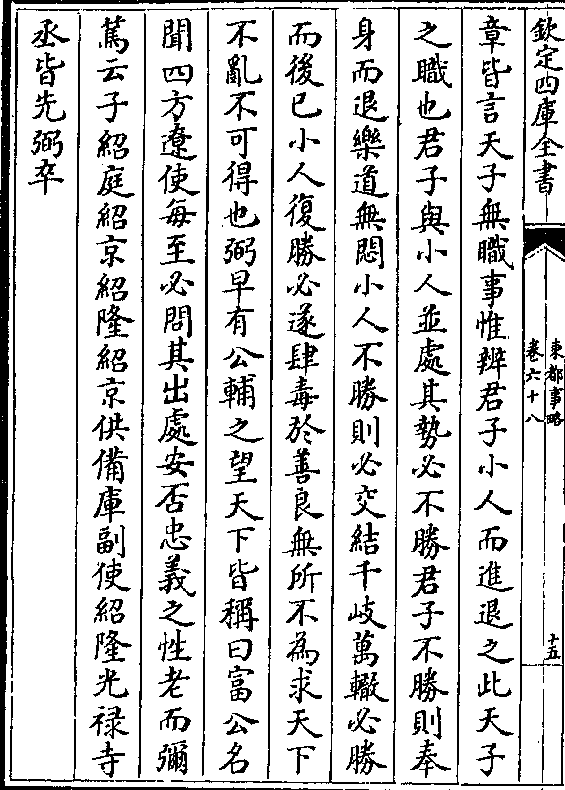 欽定四庫全書
東都事略
卷六十八
十五
章皆言天子無職事惟辨君子小人而進退之此天子
之職也君子與小人並處其勢必不勝君子不勝則奉
身而退樂道無悶小人不勝則必交結千岐萬轍必勝
而後已小人復勝必遂肆毒於善良無所不為求天下
不亂不可得也弼早有公輔之望天下皆稱曰富公名
聞四方遼使每至必問其出處安否忠義之性老而彌
篤云子紹庭紹京紹隆紹京供備庫副使紹隆光禄寺
丞皆先弼卒